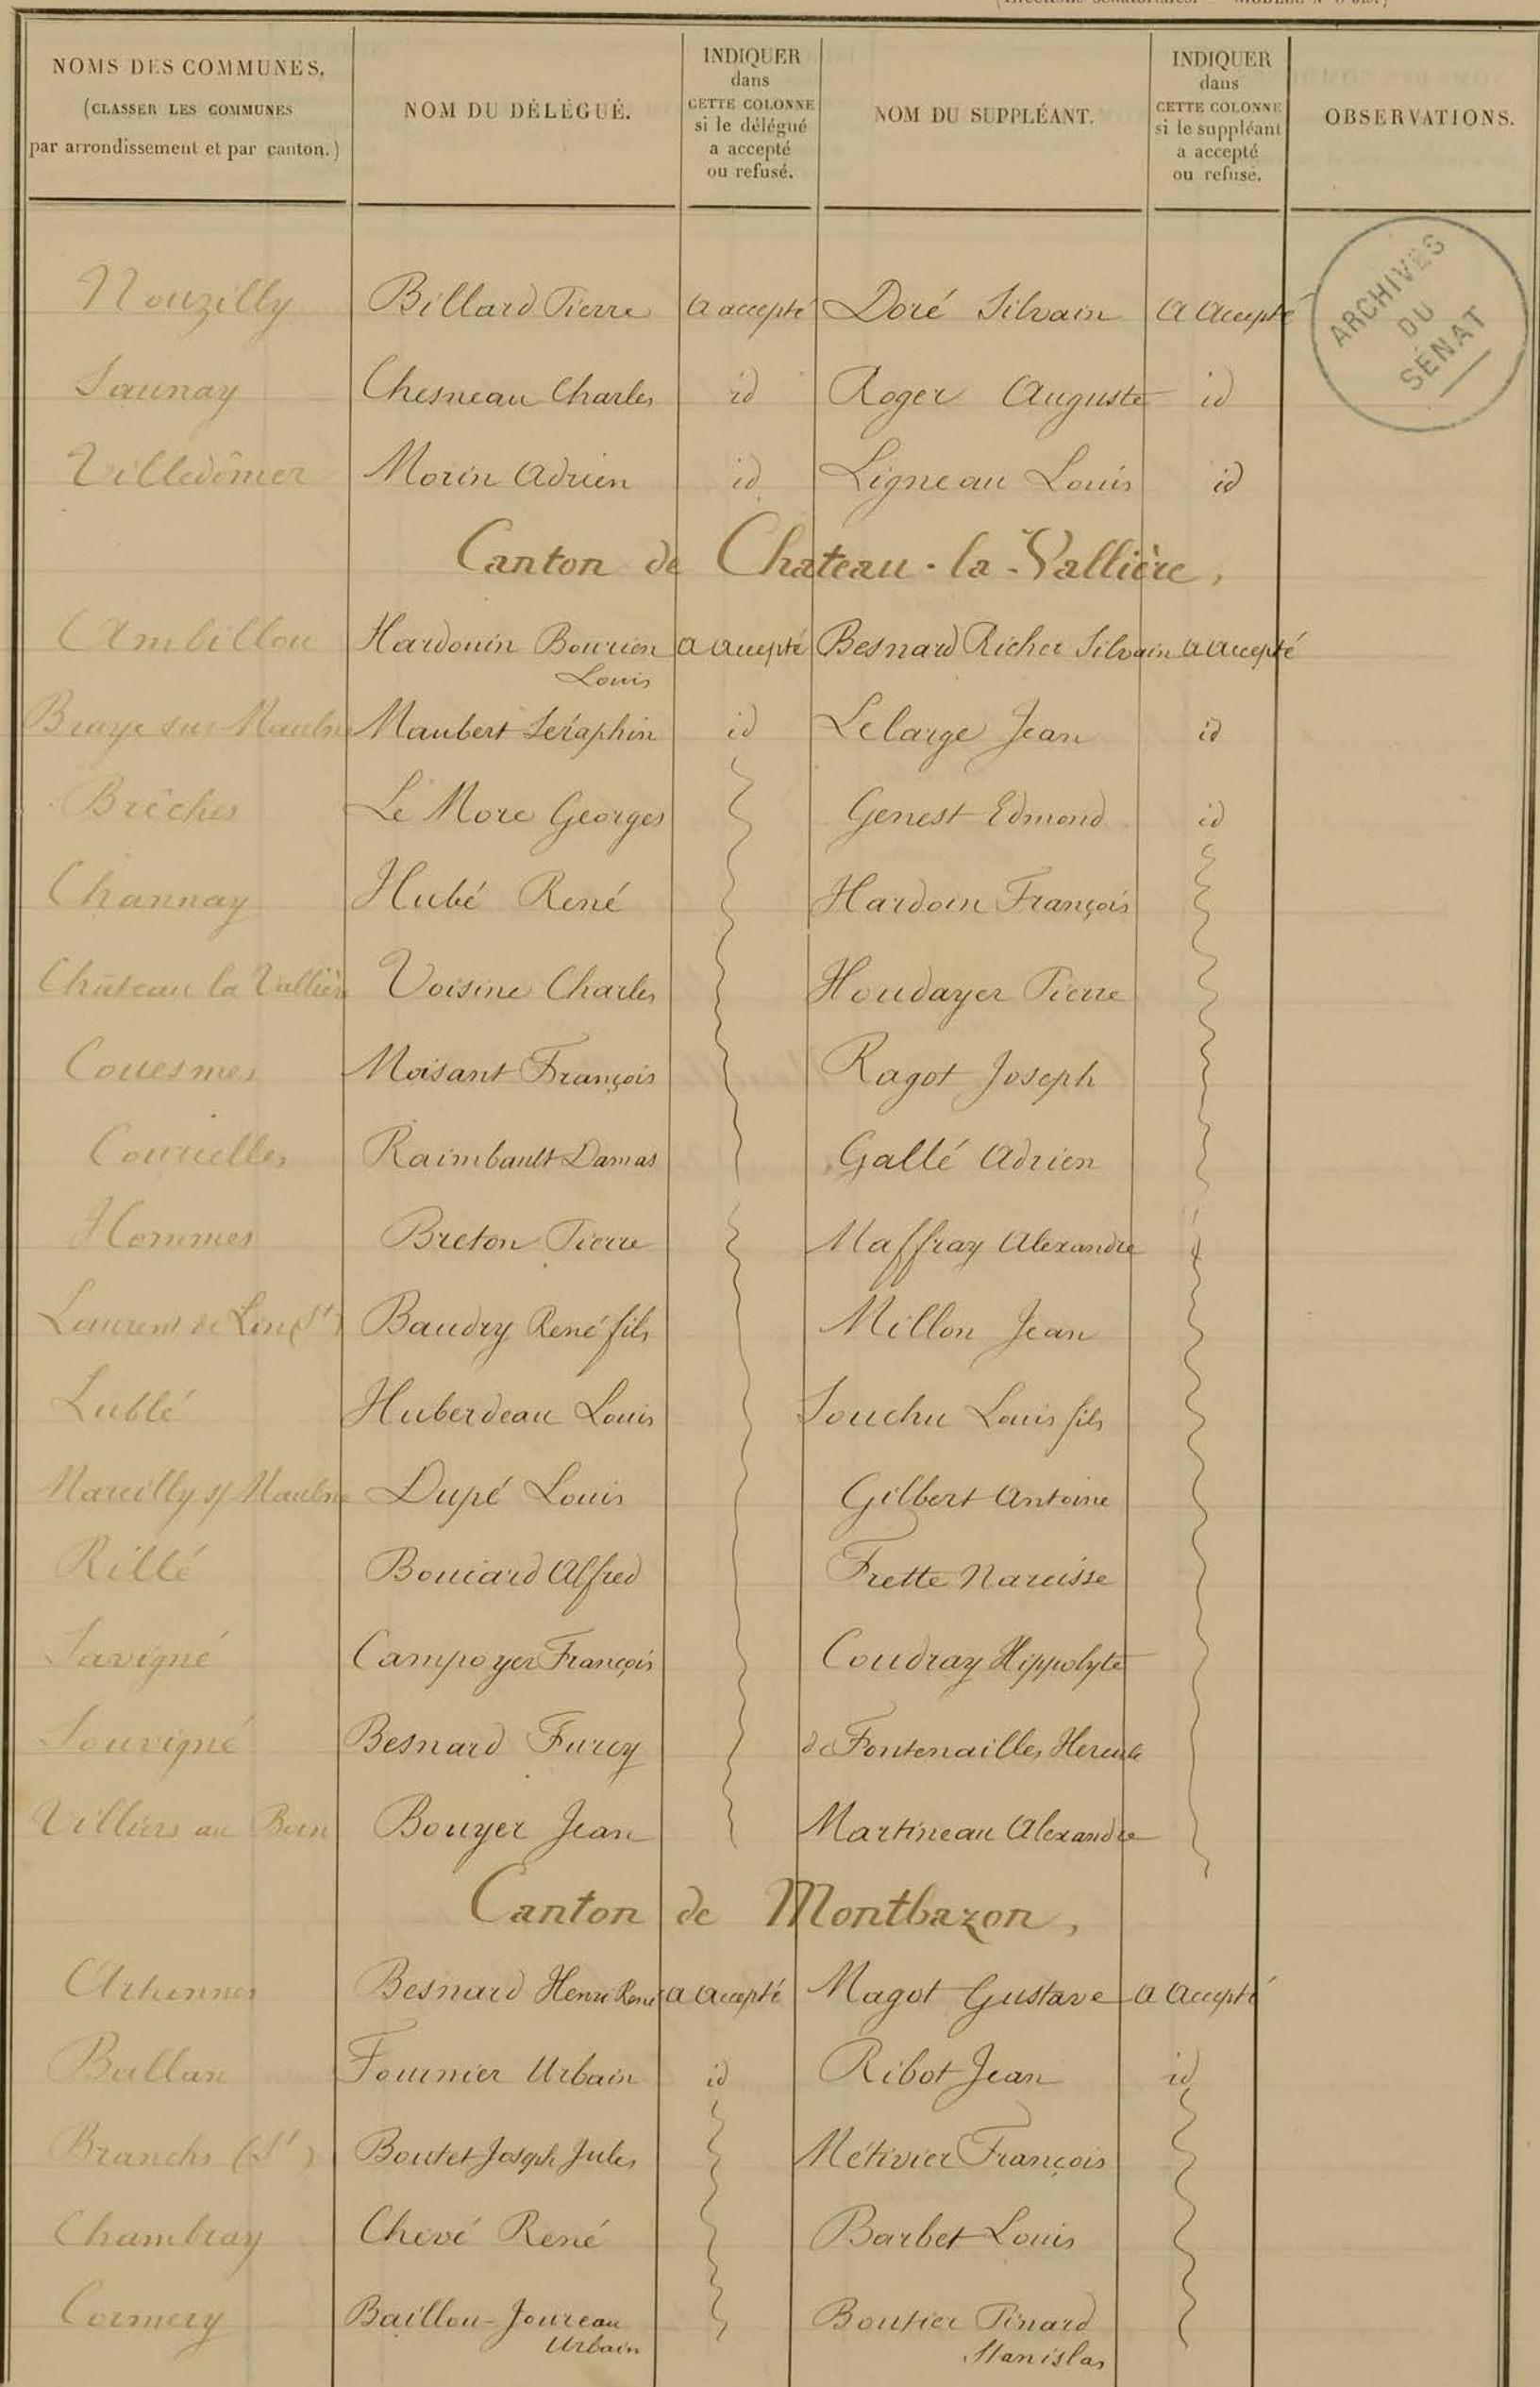 NOMS DES COMMUNES.
(CLASSER LES COMMUNES
par arrondissement et par canton.)
NOM DU DÉLÉGUÉ.
INDIQUER
dans
CETTE COLONNE
si le délégué
a accepté
ou refusé.
NOM DU SUPPLÉANT.
INDIQUER
dans
CETTE COLONNE
si le suppléant
a accepté
ou refusé.
OBSERVATIONS.
ARCHIVES
DU
SÉNAT
Nouzilly Billard Pierre a accepté Doré Silvain a accepté
Saunay Chesneau Charles id Roger Auguste id
Villedômer Morin Adrien id Ligneau Louis id
Canton de Chateau-la-Vallière,
Ambillou Hardouin Bourien a accepté Besnard Richer Silvain a accepté
Louis
Braye sur Maulne Maubert Séraphin id Lelarge Jean id
Brèches Le More Georges Genest Edmond id
Channay Hubé René Hardoin François
Château la Vallière Voisine Charles Houdayer Pierre
Couesmes Moisant François Ragot Joseph
Courcelles Raimbault Damas Gallé Adrien
Hommes Breton Pierre Maffray Alexandre
Laurent de Lin (St) Baudry René fils Millon Jean
Lublé Huberdeau Louis Souchu Louis fils
Marcilly s/ Maulne Dupé Louis Gilbert Antoine
Rillé Bouiard Alfred Frette Narcisse
Savigné Campoyer François Coudray Hippolyte
Souvigné Besnard Furcy de Fontenailles Hercule
Villiers au Boin Bouyer Jean Martineau Alexandre
Canton de Montbazon,
Artannes Besnard Henri René a accepté Magot Gustave a accepté
Ballan Fournier Urbain id Ribot Jean id
Branchs (St) Boutet Joseph Jules Métivier François
Chambray Chevé René Barbet Louis
Cormery Baillou-Joureau Boutier Pinard
Urbain Stanislas